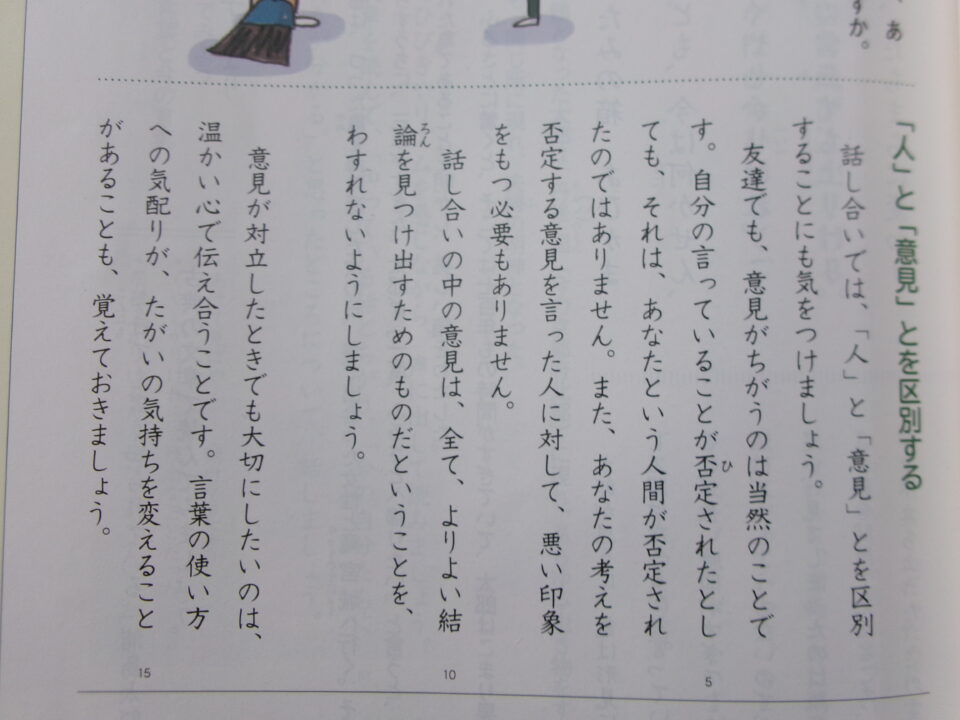 、あ
すか。
「人」と「意見」とを区別する
話し合いでは、「人」と「意見」とを区別
することにも気をつけましょう。
友達でも、意見がちがうのは当然のことで
す。自分の言っていることが否定されたとし
ても、それは、あなたという人間が否定され
たのではありません。また、あなたの考えを
否定する意見を言った人に対して、悪い印象
をもつ必要もありません。
話し合いの中の意見は、全て、よりよい結
論を見つけ出すためのものだということを、
わすれないようにしましょう。
意見が対立したときでも大切にしたいのは、
温かい心で伝え合うことです。言葉の使い方
への気配りが、たがいの気持ちを変えること
があることも、覚えておきましょう。
ひ
ろん
5
10
15